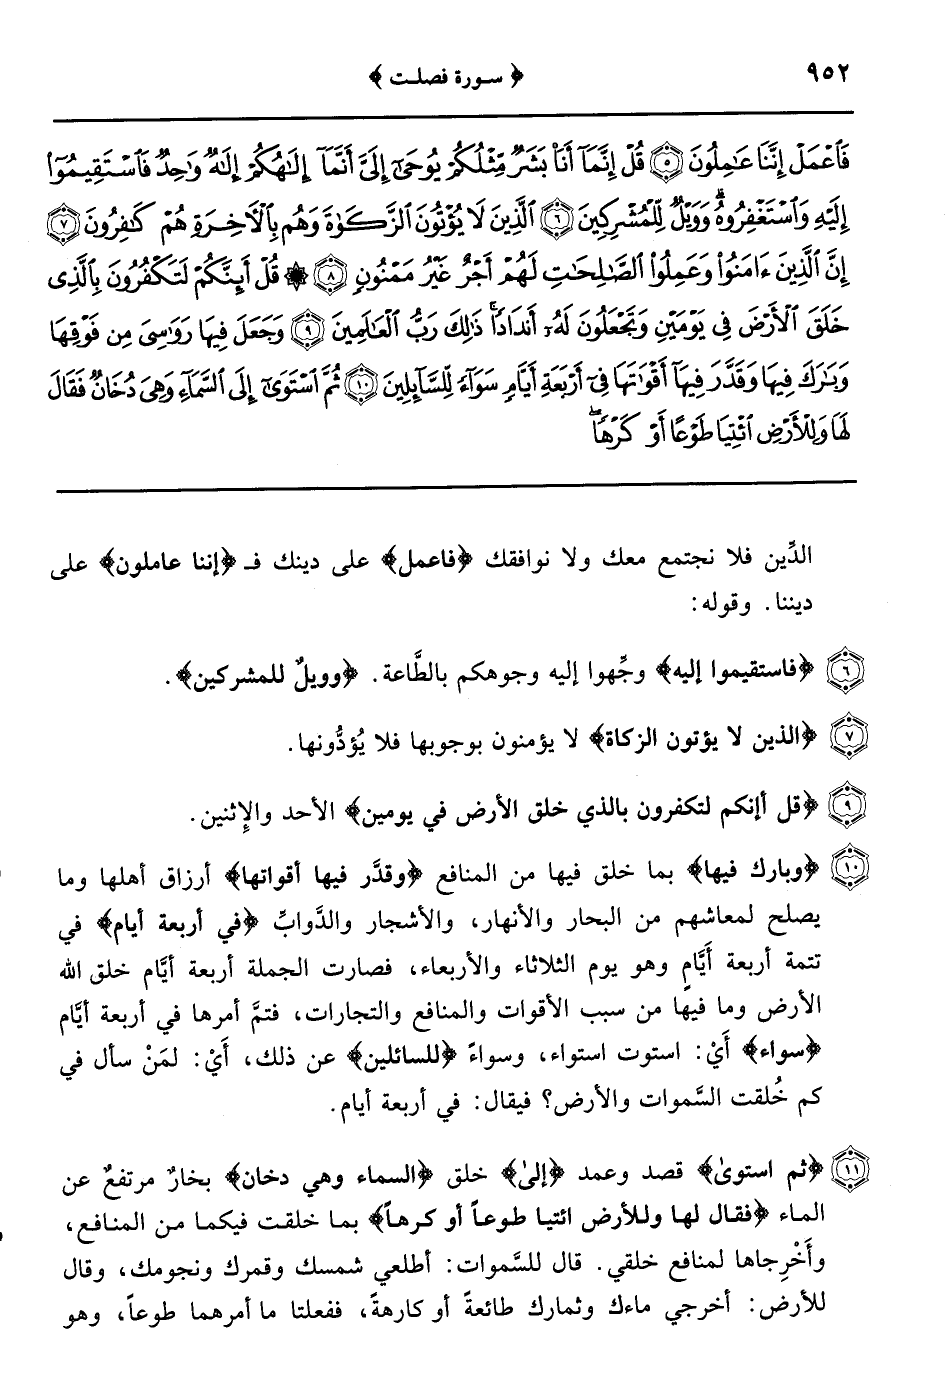 ٩٥٢
﴿ سورة فصلت ﴾
فَٱعۡمَلۡ إِنَّنَا عَٰمِلُونَ ٥ قُلۡ إِنَّمَآ أَنَا۠ بَشَرٞ مِّثۡلُكُمۡ يُوحَىٰٓ إِلَيَّ أَنَّمَآ إِلَٰهُكُمۡ إِلَٰهٞ وَٰحِدٞ فَٱسۡتَقِيمُوٓاْ
إِلَيۡهِ وَٱسۡتَغۡفِرُوهُۗ وَوَيۡلٞ لِّلۡمُشۡرِكِينَ ٦ ٱلَّذِينَ لَا يُؤۡتُونَ ٱلزَّكَوٰةَ وَهُم بِٱلۡأٓخِرَةِ هُمۡ كَٰفِرُونَ ٧
إِنَّ ٱلَّذِينَ ءَامَنُواْ وَعَمِلُواْ ٱلصَّٰلِحَٰتِ لَهُمۡ أَجۡرٌ غَيۡرُ مَمۡنُونٖ ٨ ۞ قُلۡ أَئِنَّكُمۡ لَتَكۡفُرُونَ بِٱلَّذِي
خَلَقَ ٱلۡأَرۡضَ فِي يَوۡمَيۡنِ وَتَجۡعَلُونَ لَهُۥٓ أَندَادٗاۚ ذَٰلِكَ رَبُّ ٱلۡعَٰلَمِينَ ٩ وَجَعَلَ فِيهَا رَوَٰسِيَ مِن فَوۡقِهَا
وَبَٰرَكَ فِيهَا وَقَدَّرَ فِيهَآ أَقۡوَٰتَهَا فِيٓ أَرۡبَعَةِ أَيَّامٖ سَوَآءٗ لِّلسَّآئِلِينَ ١٠ ثُمَّ ٱسۡتَوَىٰٓ إِلَى ٱلسَّمَآءِ وَهِيَ دُخَانٞ فَقَالَ
لَهَا وَلِلۡأَرۡضِ ٱئۡتِيَا طَوۡعًا أَوۡ كَرۡهٗاۖ
الدِّين فلا نجتمع معك ولا نوافقك ﴿فاعمل﴾ على دينك فـ ﴿إننا عاملون﴾ على
ديننا. وقوله:
٦ ﴿فاستقيموا إليه﴾ وجِّهوا إليه وجوهكم بالطَّاعة. ﴿وويلٌ للمشركين﴾.
٧ ﴿الذين لا يؤتون الزكاة﴾ لا يؤمنون بوجوبها فلا يُؤدُّونها.
٩ ﴿قل أإنكم لتكفرون بالذي خلق الأرض في يومين﴾ الأحد والإثنين.
١٠ ﴿وبارك فيها﴾ بما خلق فيها من المنافع ﴿وقدَّر فيها أقواتها﴾ أرزاق أهلها وما
يصلح لمعاشهم من البحار والأنهار، والأشجار والدَّوابِّ ﴿في أربعة أيام﴾ في
تتمة أربعة أَيَّامٍ وهو يوم الثلاثاء والأربعاء، فصارت الجملة أربعة أيَّام خلق الله
الأرض وما فيها من سبب الأقوات والمنافع والتجارات، فتمَّ أمرها في أربعة أيَّام
﴿سواء﴾ أَيْ: استوت استواء، وسواءً ﴿للسائلين﴾ عن ذلك، أَيْ: لمَنْ سأل في
كم خُلقت السَّموات والأرض؟ فيقال: في أربعة أيام.
١١ ﴿ثم استوىٰ﴾ قصد وعمد ﴿إلىٰ﴾ خلق ﴿السماء وهي دخان﴾ بخارٌ مرتفعٌ عن
الماء ﴿فقال لها وللأرض ائتيا طوعاً أو كرهاً﴾ بما خلقت فيكما من المنافع،
وأَخْرِجاها لمنافع خلقي. قال للسَّموات: أطلعي شمسك وقمرك ونجومك، وقال
للأرض: أخرجي ماءك وثمارك طائعةً أو كارهةً، ففعلتا ما أمرهما طوعاً، وهو